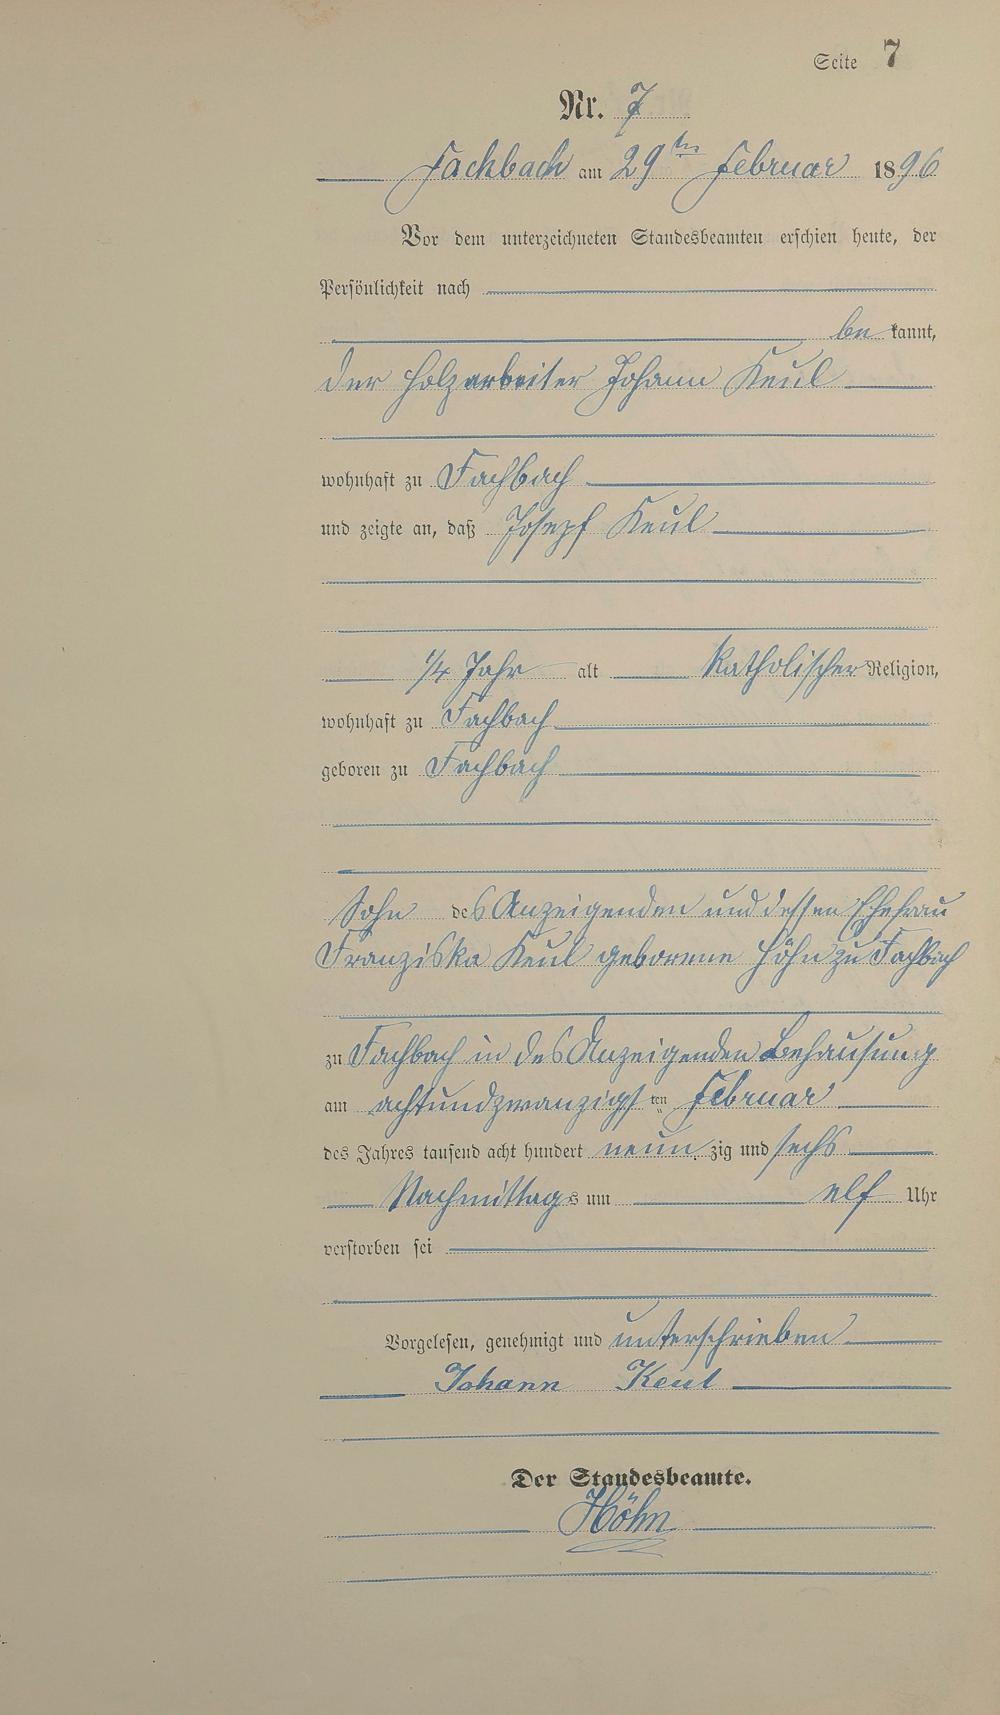 Seite 7
Nr. 7
Fachbach am 29ten Februar 1896
Vor dem unterzeichneten Standesbeamten erschien heute, der
Persönlichkeit nach
be kannt,
der Holzarbeiter Johann Keul
wohnhaft zu Fachbach
und zeigte an, daß Josepf Keul
1/4 Jahr alt katholischer Religion,
wohnhaft zu Fachbach
geboren zu Fachbach
Sohn des Anzeigenden und dessen Ehefrau
Franziska Keul geborene Höhn zu Fachbach
zu Fachbach in des Anzeigenden Behausung
am achtundzwanzigsten Februar
des Jahres tausend acht hundert neunzig und sechs
Nachmittags um elf Uhr
verstorben sei
Vorgelesen, genehmigt und unterschrieben
Johann Keul
Der Standesbeamte.
Höhn